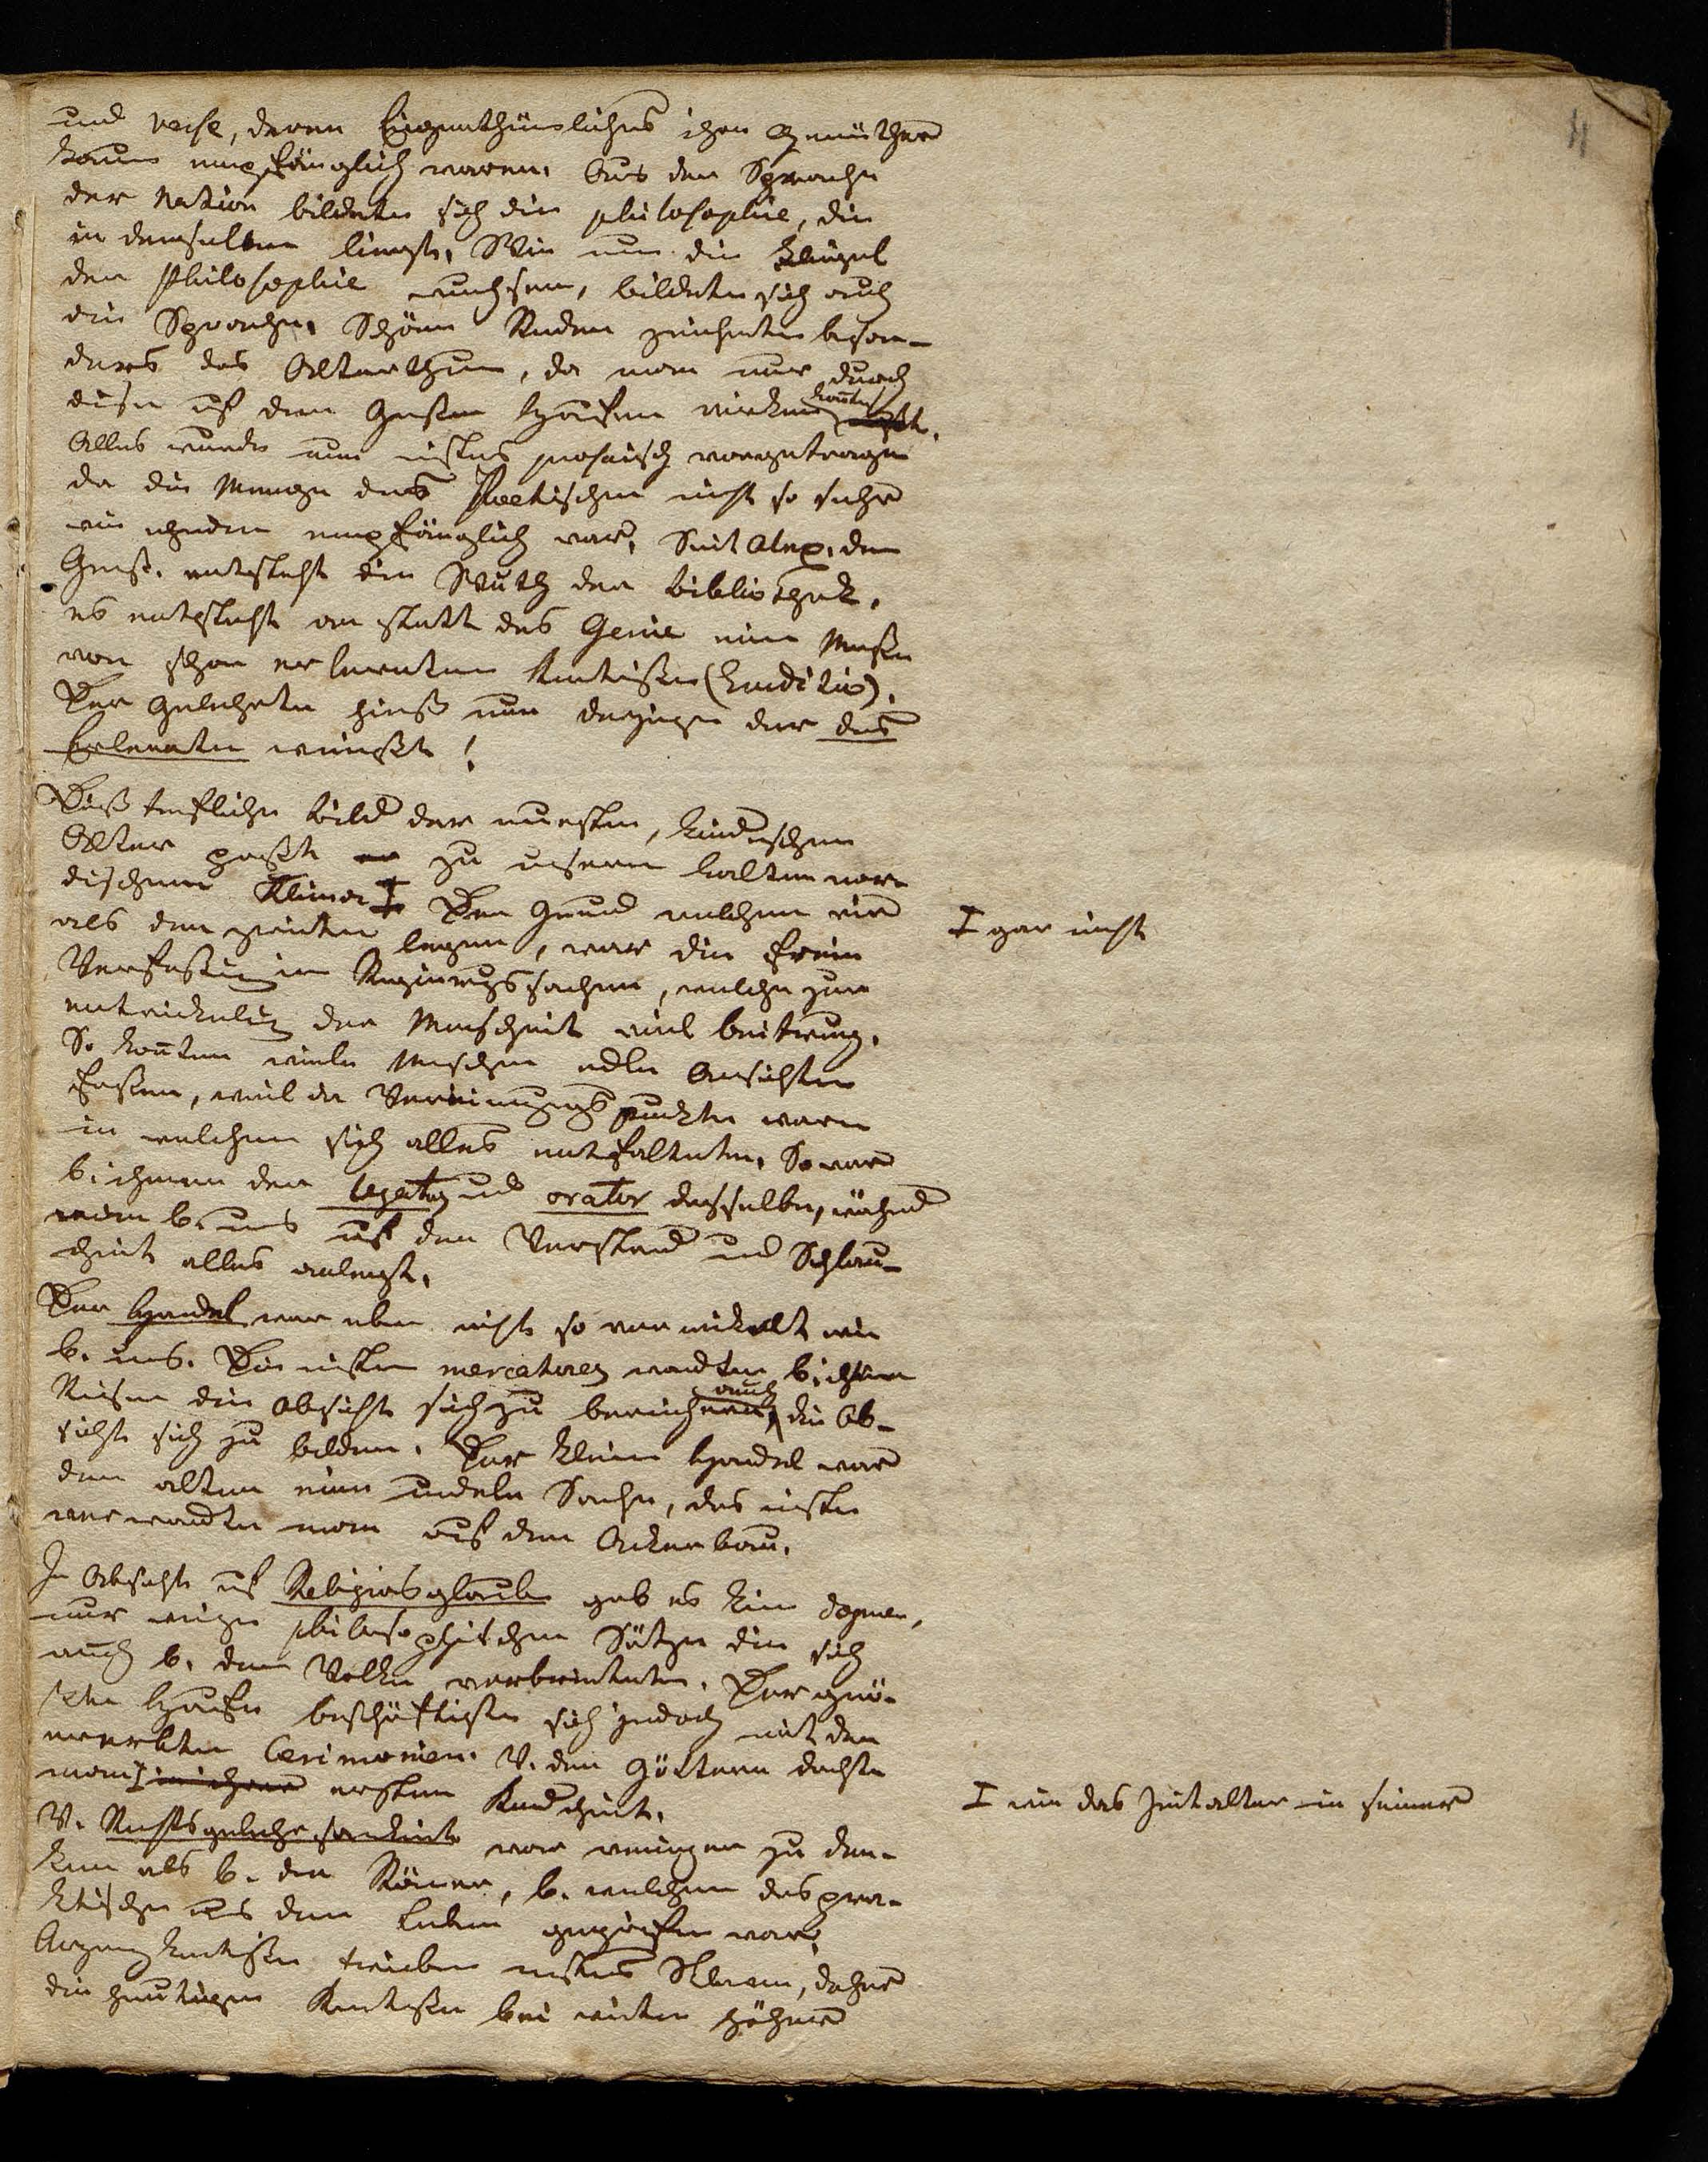 4
und Verse, deren Eigenthümliches ihre Gemüther
kaum empfänglich waren. Aus der Sprache
der Nation bildete sich die Philosophie, die
in derselben liegt. Wie nun die Flügel
der Philosophie wuchsen, bildete sich auch
die Sprache. Schöne Reden zeichneten beson-
ders das Alterthum, da man nur durch
diese auf den Großen Haufen wirken konte
Alles wurde nun nichts prosaisch vorgetragen
da die Menge des Poetischen nicht so sehr
wie ehedem empfänglich war. Seit Alex. dem
Groß. entsteht die Wuth der Bibliothek.
es entsteht an statt des Genie eine Maße
von schon erlernten Kentnißen (Eruditio).
Der Gelehrte hieß nun derjenige der das
Erlernte wußte!
Dieß treffliche Bild der ersten, kindischen
Alter paßte zu unserm kalten nor-
dischen Klima I Der Grund welchen wir
als den zweiten legen, war die freie
Verfaßung in Regirungssachen, welche zur
entwickelung der Menschheit viel beitrug.
So konten viele Menschen edle Ansichten
faßen, weil da Vereinigungspunkte waren
in welchen sich alles entfaltete. So war
b. ihnen der legatus und orator derselbe, während
man b. uns auf den Verstand und Schlau-
heit alles anlegt.
Der Handel war eben nicht so verwickelt wie
b. uns. Die ersten mercatores wandten b. ihren
Reisen die Absicht sich zu bereichern, auch die Ab-
sicht sich zu bilden. Der kleine Handel war
den alten eine unedele Sache, das meiste
verwandte man auf den Ackerbau.
In Absicht auf Religionsglaube gab es keine Dogmen,
nur einige philosophischen Sätze die sich
auch b. dem Volke verbreiteten. Der grö-
ßte Haufe beschäftigte sich jedoch mit den
ererbten Cerimonien. V. den Göttern dachte
man I ersten Kindheit.
V. Rechtsgelehrsamkeit war weniger zu den-
ken als b. den Römer, b. welchen das prac-
tische aus dem Leben gegriffen war.
Arzneykentniße trieben meistens Sklaven, daher
die heutigen Kentniße bei weiten höher
I gar nicht
I wie das Zeitalter in seiner